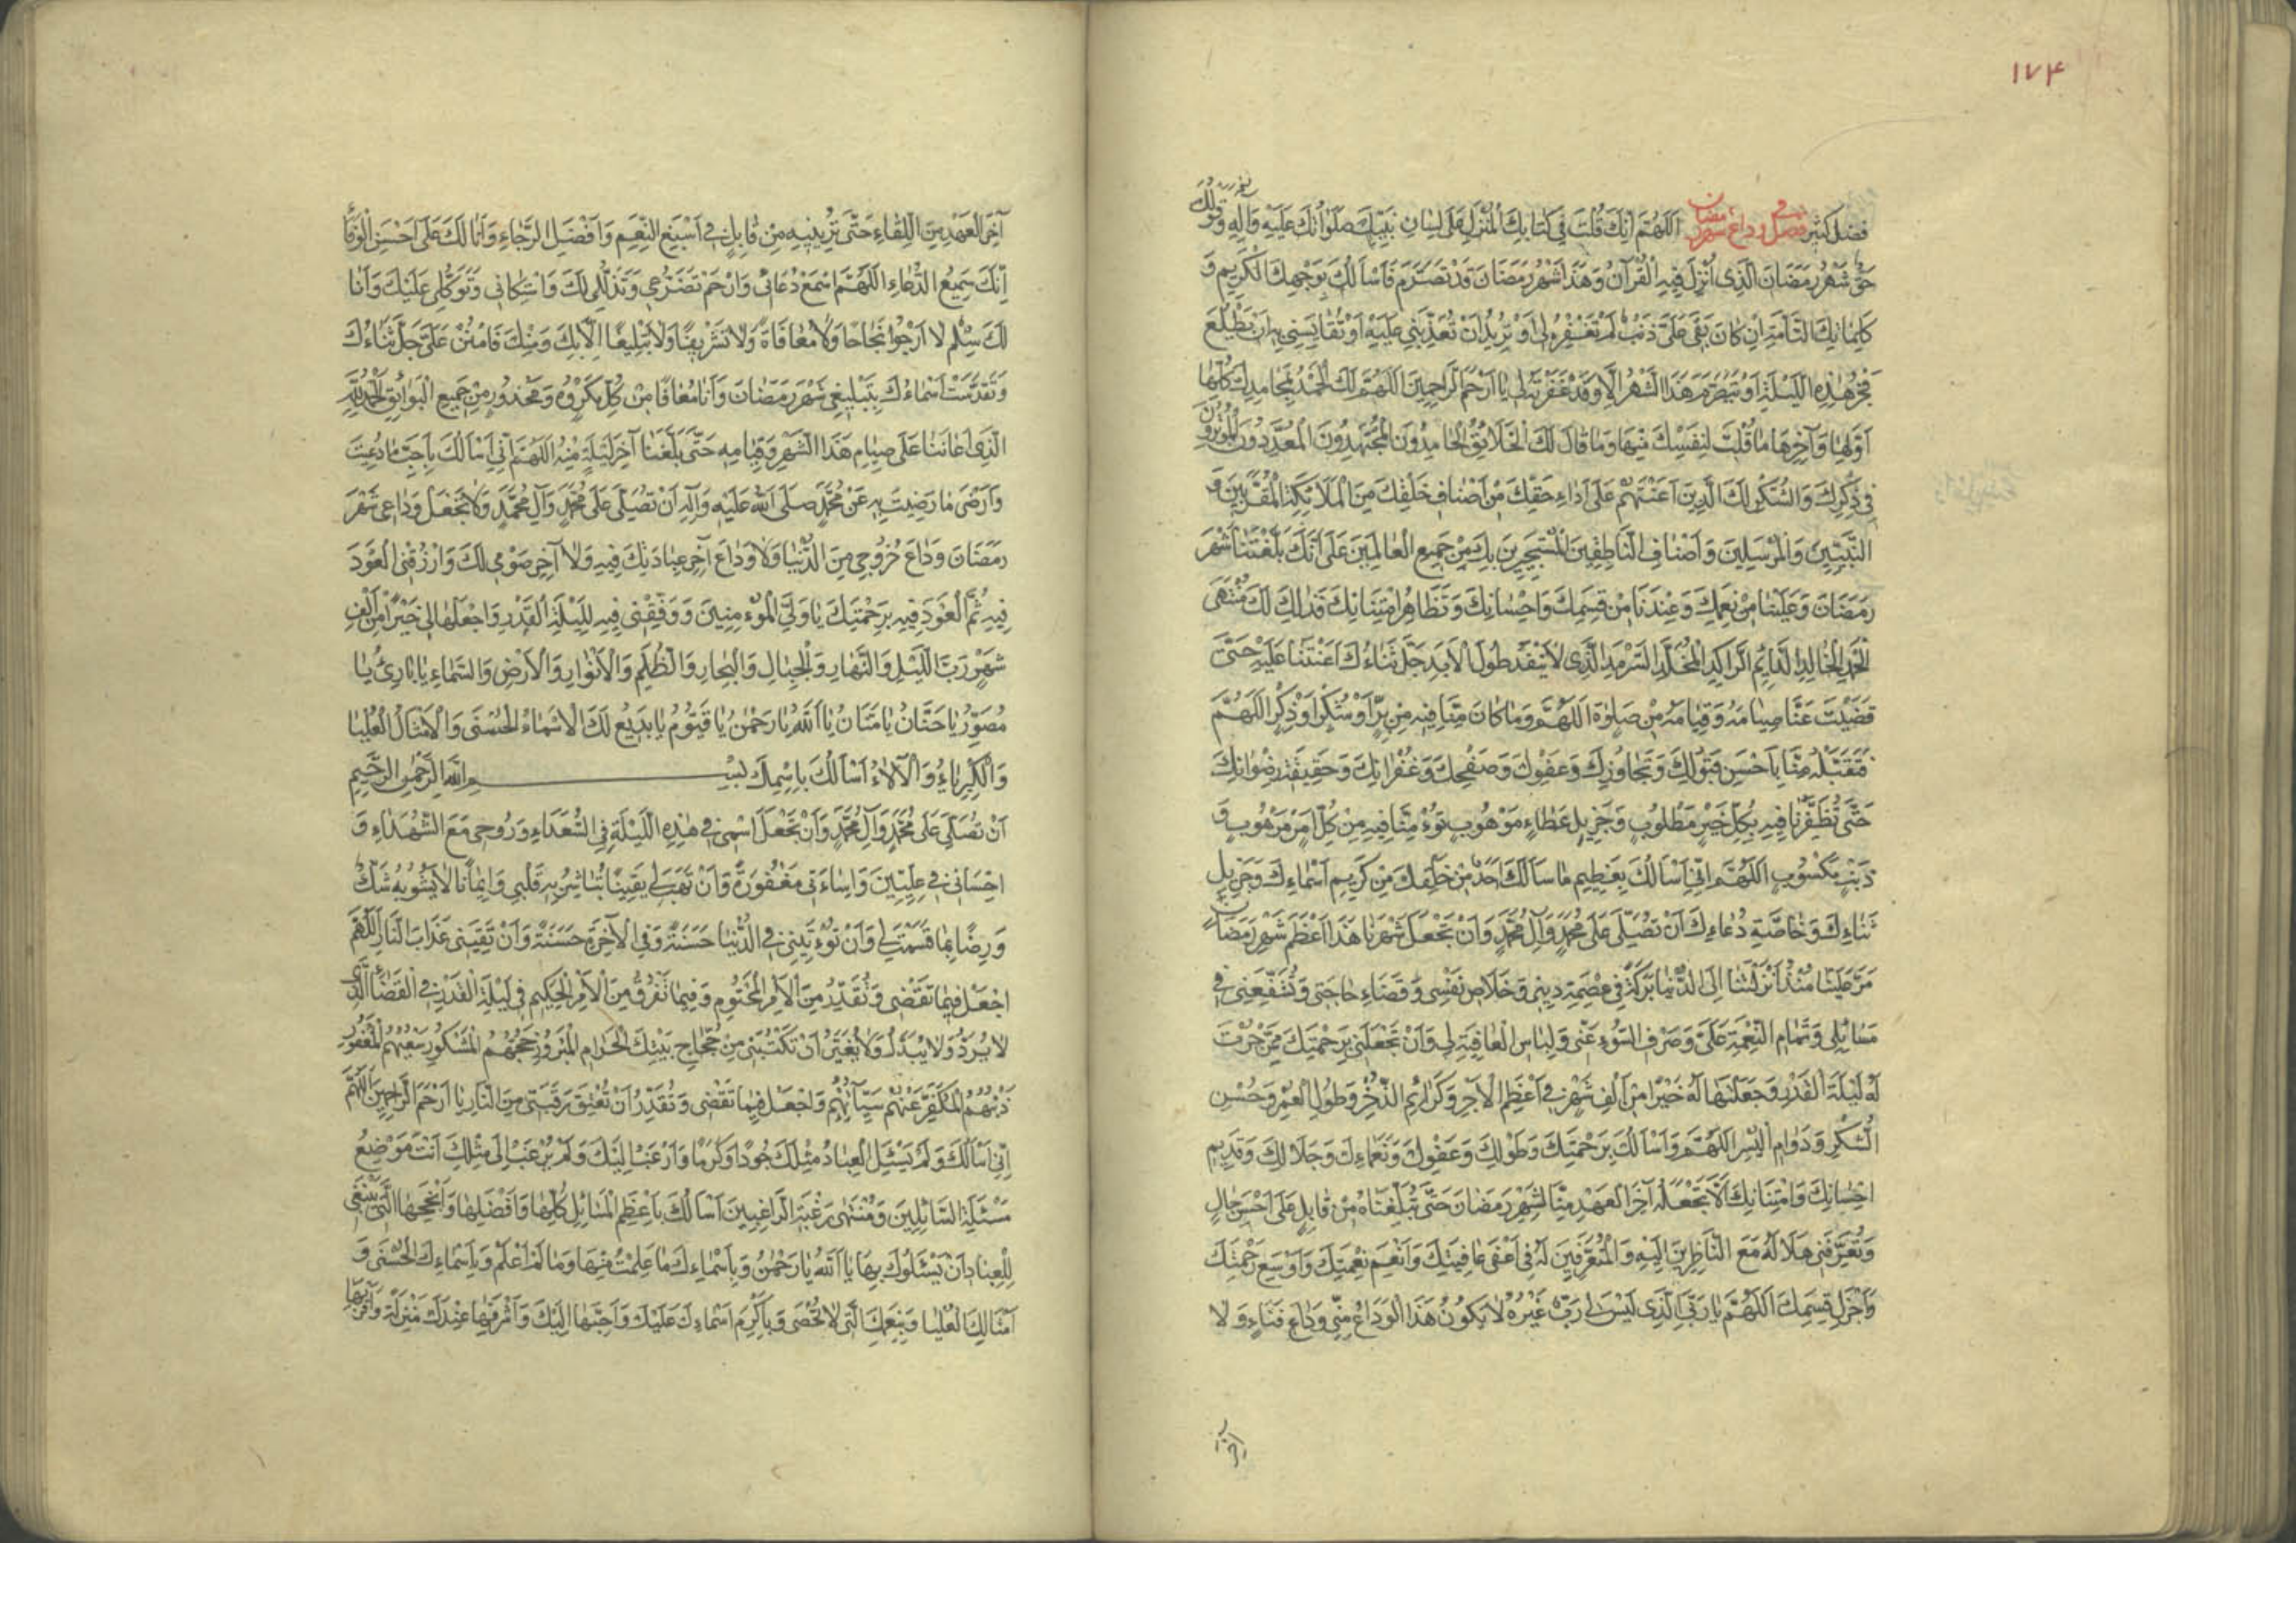 ١٧٤
فضل كثير فصل في وداع شهر رمضان اَللّهُمَّ اِنَّكَ قُلْتَ في كِتابِكَ الْمُنْزَلِ عَلى لِسانِ نَبِيِّكَ صَلَواتُكَ عَلَيْهِ وَآلِهِ وَقَوْلُكَ
حَقٌّ شَهْرُ رَمَضانَ الَّذى اُنْزِلَ فيهِ الْقُرْآنُ وَهذا شَهْرُ رَمَضانَ قَدْ تَصَرَّمَ فَاَسْاَلُكَ بِوَجْهِكَ الْكَريمِ وَ
كَلِماتِكَ التّامَّةِ اِنْ كانَ بَقِىَ عَلَىَّ ذَنْبٌ لَمْ تَغْفِرْهُ لى اَوْ تُريدُ اَنْ تُعَذِّبَنى عَلَيْهِ اَوْ تُقايِسَنى بِهِ اَنْ يَطْلُعَ
فَجْرُ هذِهِ اللَّيْلَةِ اَوْ يَتَصَرَّمَ هذَا الشَّهْرُ اِلّا وَقَدْ غَفَرْتَهُ لى يا اَرْحَمَ الرّاحِمينَ اَللّهُمَّ لَكَ الْحَمْدُ بِمَحامِدِكَ كُلِّها
اَوَّلِها وَآخِرِها ما قُلْتَ لِنَفْسِكَ مِنْها وَما قالَ لَكَ الْخَلائِقُ الْحامِدُونَ الْمُجْتَهِدُونَ الْمُعَدِّدُونَ الْمُؤْثِرُونَ
في ذِكْرِكَ وَالشُّكْرِ لَكَ الَّذينَ اَعَنْتَهُمْ عَلى اَداءِ حَقِّكَ مِنْ اَصْنافِ خَلْقِكَ مِنَ الْمَلائِكَةِ الْمُقَرَّبينَ وَ
النَّبِيّينَ وَالْمُرْسَلينَ وَاَصْنافِ النّاطِقينَ الْمُسْتَجيرينَ بِكَ مِنْ جَميعِ الْعالَمينَ عَلى اَنَّكَ بَلَّغْتَنا شَهْرَ
رَمَضانَ وَعَلَيْنا مِنْ نِعَمِكَ وَعِنْدَنا مِنْ قِسَمِكَ وَاِحْسانِكَ وَتَظاهُرِ امْتِنانِكَ فَذلِكَ لَكَ مُنْتَهَى
الْحَمْدِ الْخالِدِ الدّائِمِ الرّاكِدِ الْمُخَلَّدِ السَّرْمَدِ الَّذى لا يَنْفَدُ طُولَ الْاَبَدِ جَلَّ ثَناءُكَ اَعَنْتَنا عَلَيْهِ حَتّى
قَضَيْتَ عَنّا صِيامَهُ وَقِيامَهُ مِنْ صَلوةٍ اَللّهُمَّ وَما كانَ مِنّا فيهِ مِنْ بِرٍّ اَوْ شُكْرٍ اَوْ ذِكْرٍ اَللّهُمَّ
فَتَقَبَّلْهُ مِنّا بِاَحْسَنِ قَبُولِكَ وَتَجاوُزِكَ وَعَفْوِكَ وَصَفْحِكَ وَغُفْرانِكَ وَحَقيقَةِ رِضْوانِكَ
حَتّى تُظَفِّرَنا فيهِ بِكُلِّ خَيْرٍ مَطْلُوبٍ وَجَزيلِ عَطاءٍ مَوْهُوبٍ تُؤْمِنّا فيهِ مِنْ كُلِّ اَمْرٍ مَرْهُوبٍ وَ
ذَنْبٍ مَكْسُوبٍ اَللّهُمَّ اِنّى اَسْاَلُكَ بِعَظيمِ ما سَاَلَكَ اَحَدٌ مِنْ خَلْقِكَ مِنْ كَريمِ اَسْماءِكَ وَجَزيلِ
ثَناءِكَ وَخاصَّةِ دُعاءِكَ اَنْ تُصَلِّىَ عَلى مُحَمَّدٍ وَآلِ مُحَمَّدٍ وَاَنْ تَجْعَلَ شَهْرَنا هذا اَعْظَمَ شَهْرِ رَمَضانَ
مَرَّ عَلَيْنا مُنْذُ اَنْزَلْتَنا اِلَى الدُّنْيا بَرَكَةً في عِصْمَةِ دينى وَخَلاصِ نَفْسى وَقَضاءِ حاجَتى وَتُشَفِّعَنى في
مَسائِلى وَتَمامِ النِّعْمَةِ عَلَىَّ وَصَرْفِ السُّوءِ عَنّى وَلِباسِ الْعافِيَةِ لى وَاَنْ تَجْعَلَنى بِرَحْمَتِكَ مِمَّنْ حُزْتَ
لَهُ لَيْلَةَ الْقَدْرِ وَجَعَلْتَها لَهُ خَيْرًا مِنْ اَلْفِ شَهْرٍ في اَعْظَمِ الْاَجْرِ وَكَرائِمِ الذُّخْرِ وَطُولِ الْعُمْرِ وَحُسْنِ
الشُّكْرِ وَدَوامِ الْيُسْرِ اَللّهُمَّ وَاَسْاَلُكَ بِرَحْمَتِكَ وَطَوْلِكَ وَعَفْوِكَ وَنَعْماءِكَ وَجَلالِكَ وَقَديمِ
اِحْسانِكَ وَامْتِنانِكَ اَلّا تَجْعَلَهُ آخِرَ الْعَهْدِ مِنّا لِشَهْرِ رَمَضانَ حَتّى تُبَلِّغَناهُ مِنْ قابِلٍ عَلى اَحْسَنِ حالٍ
وَتُعَرِّفَنى هِلالَهُ مَعَ النّاظِرينَ اِلَيْهِ وَالْمُتَعَرِّفينَ لَهُ في اَعْفى عافِيَتِكَ وَاَنْعَمِ نِعْمَتِكَ وَاَوْسَعِ رَحْمَتِكَ
وَاَجْزَلِ قِسَمِكَ اَللّهُمَّ يا رَبِّىَ الَّذى لَيْسَ لى رَبٌّ غَيْرُهُ لا يَكُونُ هذَا الْوَداعُ مِنّى وَداعَ فَناءٍ وَلا
آخِرَ الْعَهْدِ مِنَ اللِّقاءِ حَتّى تُرِيَنيهِ مِنْ قابِلٍ في اَسْبَغِ النِّعَمِ وَاَفْضَلِ الرَّجاءِ وَاَنَا لَكَ عَلى اَحْسَنِ الْوَفاءِ
اِنَّكَ سَميعُ الدُّعاءِ اَللّهُمَّ اسْمَعْ دُعائى وَارْحَمْ تَضَرُّعى وَتَذَلُّلى لَكَ وَاسْتِكانى وَتَوَكُّلى عَلَيْكَ وَاَنَا
لَكَ سِلْمٌ لا اَرْجُوا نَجاحًا وَلا مُعافاةً وَلا تَشْريفًا وَلا تَبْليغًا اِلّا بِكَ وَمِنْكَ فَامْنُنْ عَلَىَّ جَلَّ ثَناءُكَ
وَتَقَدَّسَتْ اَسْماءُكَ بِتَبْليغى شَهْرَ رَمَضانَ وَاَنَا مُعافًا مِنْ كُلِّ مَكْرُوهٍ وَمَحْذُورٍ مِنْ جَميعِ الْبَوائِقِ اَلْحَمْدُ لِلّهِ
الَّذى اَعانَنا عَلى صِيامِ هذَا الشَّهْرِ وَقِيامِهِ حَتّى بَلَّغَنا آخِرَ لَيْلَةٍ مِنْهُ اَللّهُمَّ اِنّى اَسْاَلُكَ بِاَحَبِّ ما دُعيتَ
وَاَرْضى ما رَضيتَ بِهِ عَنْ مُحَمَّدٍ صَلَّى اللهُ عَلَيْهِ وَآلِهِ اَنْ تُصَلِّىَ عَلى مُحَمَّدٍ وَآلِ مُحَمَّدٍ وَلا تَجْعَلْ وَداعى شَهْرَ
رَمَضانَ وَداعَ خُرُوجى مِنَ الدُّنْيا وَلا وَداعَ آخِرِ عِبادَتِكَ فيهِ وَلا آخِرِ صَوْمى لَكَ وَارْزُقْنِى الْعَوْدَ
فيهِ ثُمَّ الْعَوْدَ فيهِ بِرَحْمَتِكَ يا وَلِىَّ الْمُؤْمِنينَ وَوَفِّقْنى فيهِ لِلَيْلَةِ الْقَدْرِ وَاجْعَلْها لى خَيْرًا مِنْ اَلْفِ
شَهْرٍ رَبَّ اللَّيْلِ وَالنَّهارِ وَالْجِبالِ وَالْبِحارِ وَالظُّلَمِ وَالْاَنْوارِ وَالْاَرْضِ وَالسَّماءِ يا بارِئُ يا
مُصَوِّرُ يا حَنّانُ يا مَنّانُ يا اَللهُ يا رَحْمنُ يا قَيُّومُ يا بَديعُ لَكَ الْاَسْماءُ الْحُسْنى وَالْاَمْثالُ الْعُلْيا
وَالْكِبْرِياءُ وَالْآلاءُ اَسْاَلُكَ بِاسْمِكَ بِسْمِ اللهِ الرَّحْمنِ الرَّحيمِ
اَنْ تُصَلِّىَ عَلى مُحَمَّدٍ وَآلِ مُحَمَّدٍ وَاَنْ تَجْعَلَ اسْمى في هذِهِ اللَّيْلَةِ فِى السُّعَداءِ وَرُوحى مَعَ الشُّهَداءِ وَ
اِحْسانى في عِلِّيّينَ وَاِساءَتى مَغْفُورَةً وَاَنْ تَهَبَ لى يَقينًا تُباشِرُ بِهِ قَلْبى وَايمانًا لا يَشُوبُهُ شَكٌّ
وَرِضًا بِما قَسَمْتَ لى وَاَنْ تُؤْتِيَنى فِى الدُّنْيا حَسَنَةً وَفِى الْآخِرَةِ حَسَنَةً وَاَنْ تَقِيَنى عَذابَ النّارِ اَللّهُمَّ
اجْعَلْ فيما تَقْضى وَتُقَدِّرُ مِنَ الْاَمْرِ الْمَحْتُومِ وَفيما تَفْرُقُ مِنَ الْاَمْرِ الْحَكيمِ في لَيْلَةِ الْقَدْرِ فِى الْقَضاءِ الَّذى
لا يُرَدُّ وَلا يُبَدَّلُ وَلا يُغَيَّرُ اَنْ تَكْتُبَنى مِنْ حُجّاجِ بَيْتِكَ الْحَرامِ الْمَبْرُورِ حَجُّهُمُ الْمَشْكُورِ سَعْيُهُمُ الْمَغْفُورِ
ذَنْبُهُمُ الْمُكَفَّرِ عَنْهُمْ سَيِّآتُهُمْ وَاجْعَلْ فيما تَقْضى وَتُقَدِّرُ اَنْ تُعْتِقَ رَقَبَتى مِنَ النّارِ يا اَرْحَمَ الرّاحِمينَ اَللّهُمَّ
اِنّى اَسْاَلُكَ وَلَمْ يَسْئَلِ الْعِبادُ مِثْلَكَ جُودًا وَكَرَمًا وَاَرْغَبُ اِلَيْكَ وَلَمْ يُرْغَبْ اِلى مِثْلِكَ اَنْتَ مَوْضِعُ
مَسْئَلَةِ السّائِلينَ وَمُنْتَهى رَغْبَةِ الرّاغِبينَ اَسْاَلُكَ بِاَعْظَمِ الْمَسائِلِ كُلِّها وَاَفْضَلِها وَاَنْجَحِهَا الَّتى يَنْبَغى
لِلْعِبادِ اَنْ يَسْئَلُوكَ بِها يا اَللهُ يا رَحْمنُ وَبِاَسْماءِكَ ما عَلِمْتُ مِنْها وَما لَمْ اَعْلَمْ وَبِاَسْماءِكَ الْحُسْنى وَ
اَمْثالِكَ الْعُلْيا وَنِعَمِكَ الَّتى لا تُحْصى وَبِاَكْرَمِ اَسْماءِكَ عَلَيْكَ وَاَحَبِّها اِلَيْكَ وَاَشْرَفِها عِنْدَكَ مَنْزِلَةً وَاَقْرَبِها